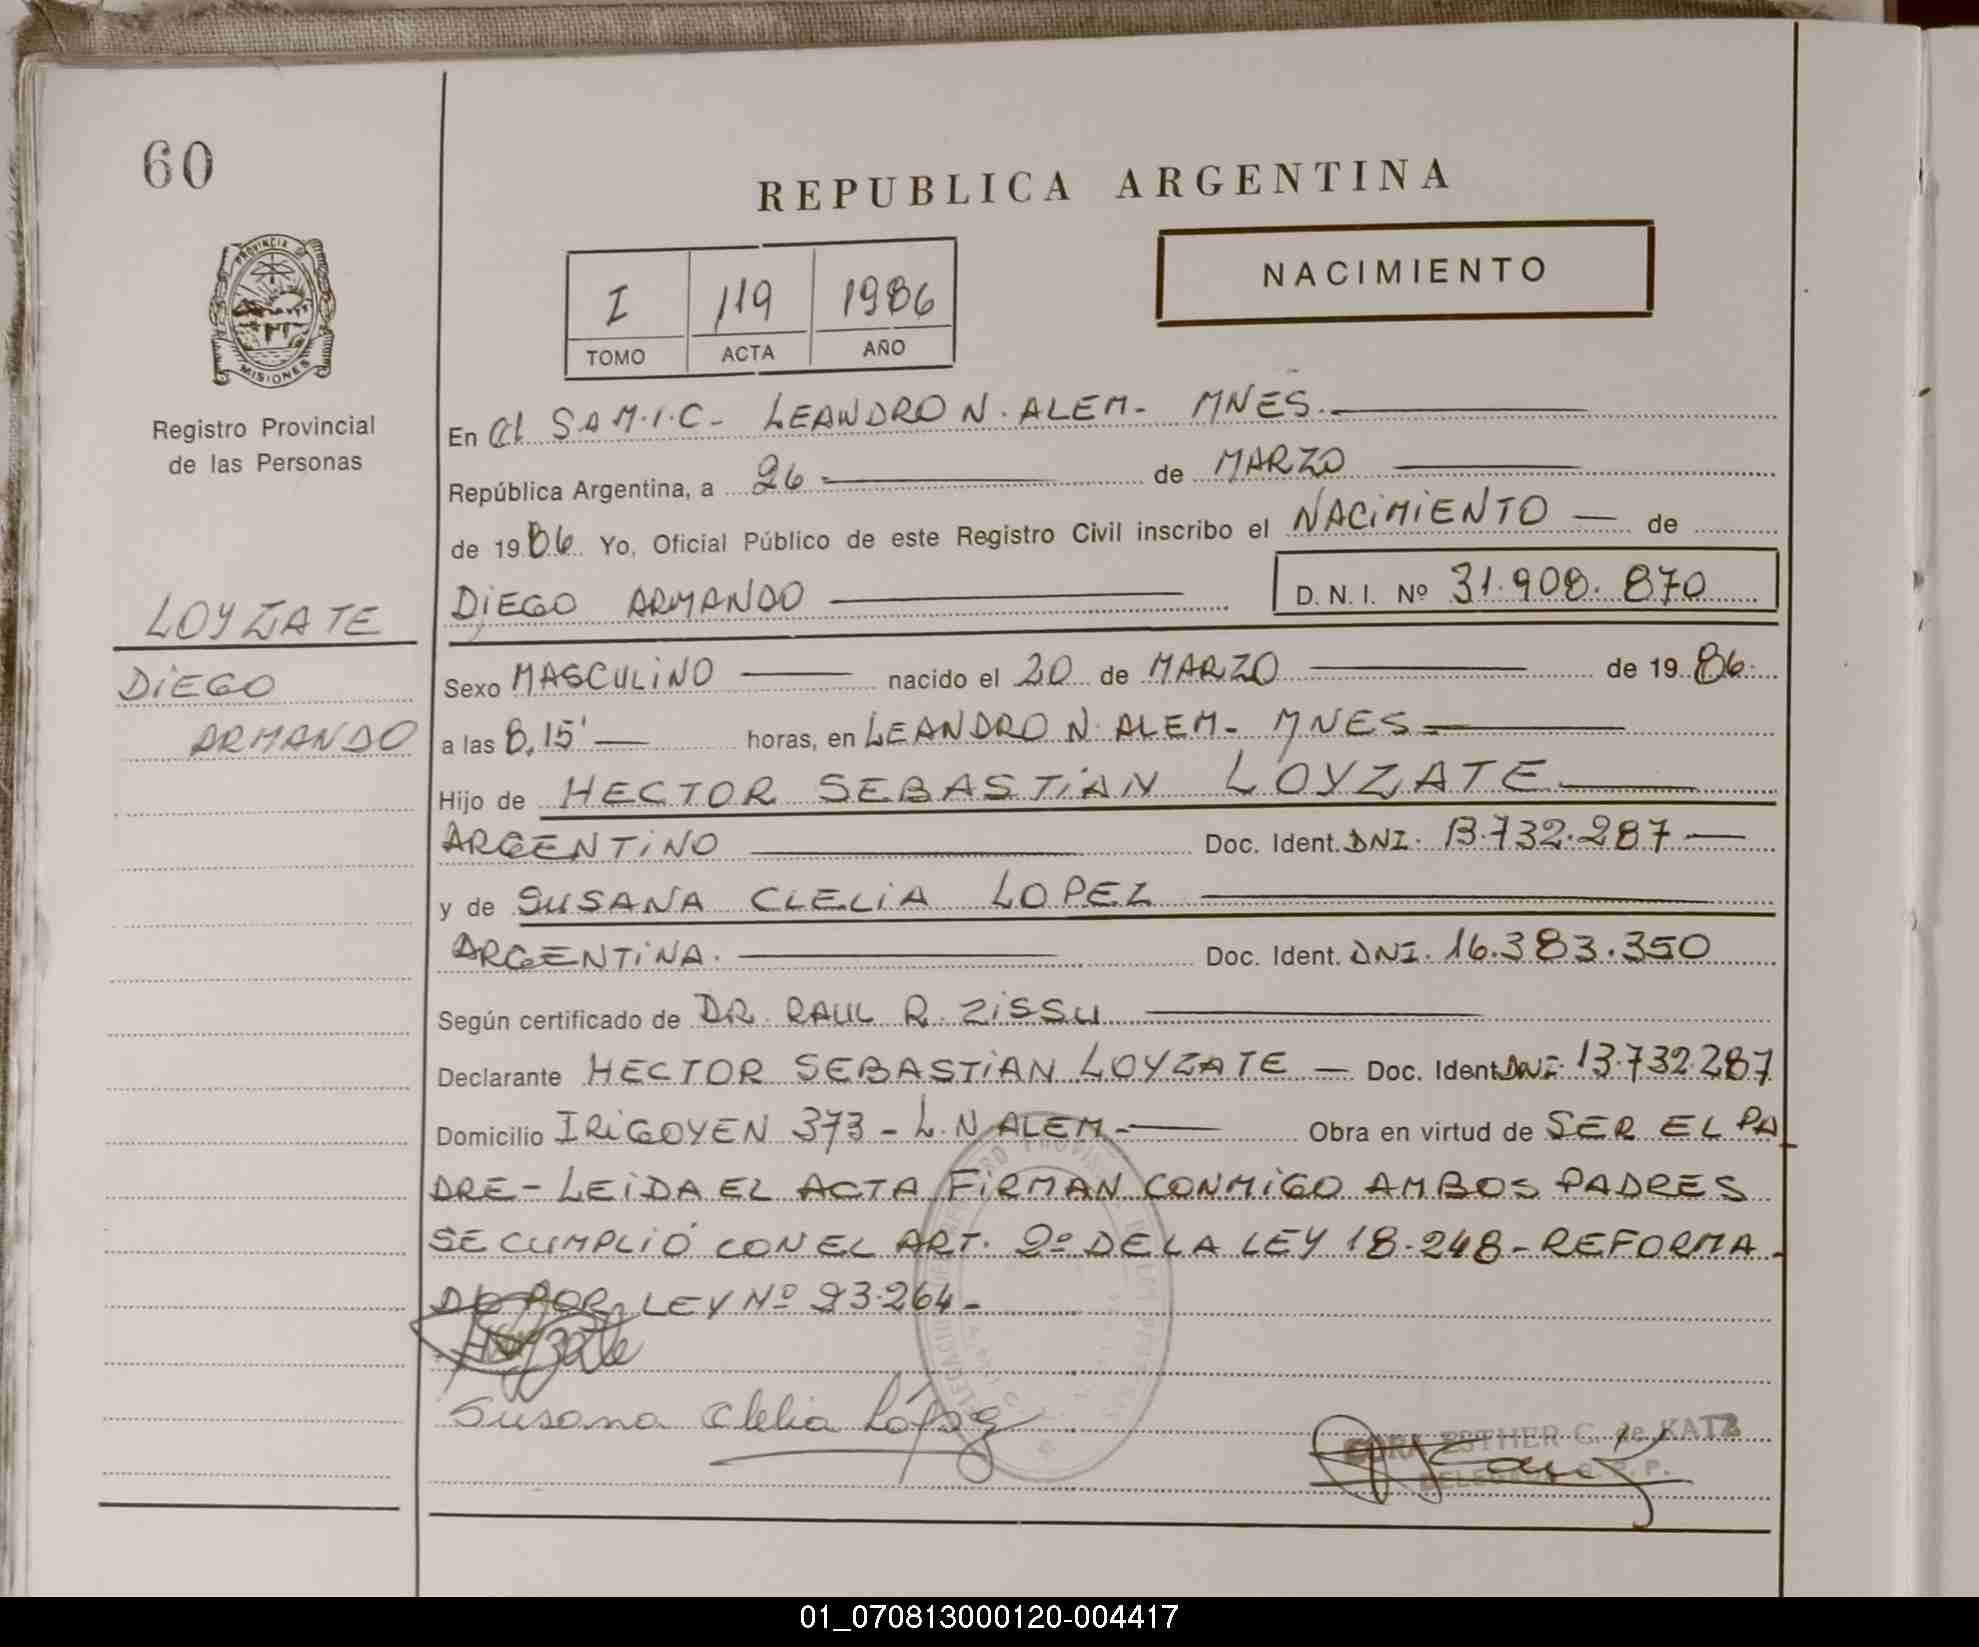 60
REPUBLICA ARGENTINA
NACIMIENTO
I 119 1986
TOMO ACTA AÑO
PROVINCIA DE
MISIONES
Registro Provincial
de las Personas
En el S.A.M.I.C- LEANDRO N. ALEM- MNES.
República Argentina, a 26 de MARZO
de 1986 Yo, Oficial Público de este Registro Civil inscribo el NACIMIENTO de
DIEGO ARMANDO D. N. I. Nº 31.908.870
LOYZATE
DIEGO
ARMANDO
Sexo MASCULINO nacido el 20 de MARZO de 1986.
a las 8,15' horas, en LEANDRO N. ALEM- MNES
Hijo de HECTOR SEBASTIAN LOYZATE
ARGENTINO Doc. Ident. DNI. 13.732.287
y de SUSANA CLELIA LOPEZ
ARGENTINA. Doc. Ident. DNI. 16.383.350
Según certificado de DR. RAUL R. ZISSU
Declarante HECTOR SEBASTIAN LOYZATE Doc. Ident. DNI. 13.732.287
Domicilio IRIGOYEN 373 - L.N ALEM - Obra en virtud de SER EL PA
DRE - LEIDA EL ACTA FIRMAN CONMIGO AMBOS PADRES
SE CUMPLIÓ CON EL ART. 2º DE LA LEY 18.248 - REFORMA-
DO POR LEY Nº 23.264-
Susana Clelia López
ESTHER G. de KATZ
01_070813000120-004417